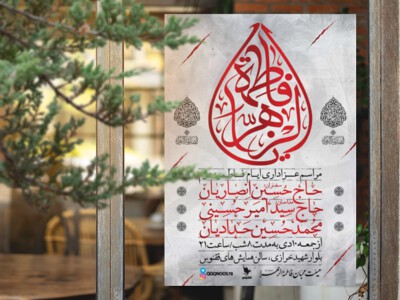 فاطمة الزهراء
مراسم عزاداری ایام فاطمیه
حاج حسین انصاریان
حاج سید امیر حسینی
محمدحسین حدادیان
از جمعه ۱۰ دی به مدت ۸ شب، ساعت ۲۱
بلوار شهید خرازی، سالن همایش های ققنوس
هیئت محبان فاطمة الزهرا
QQQNOOS.IR